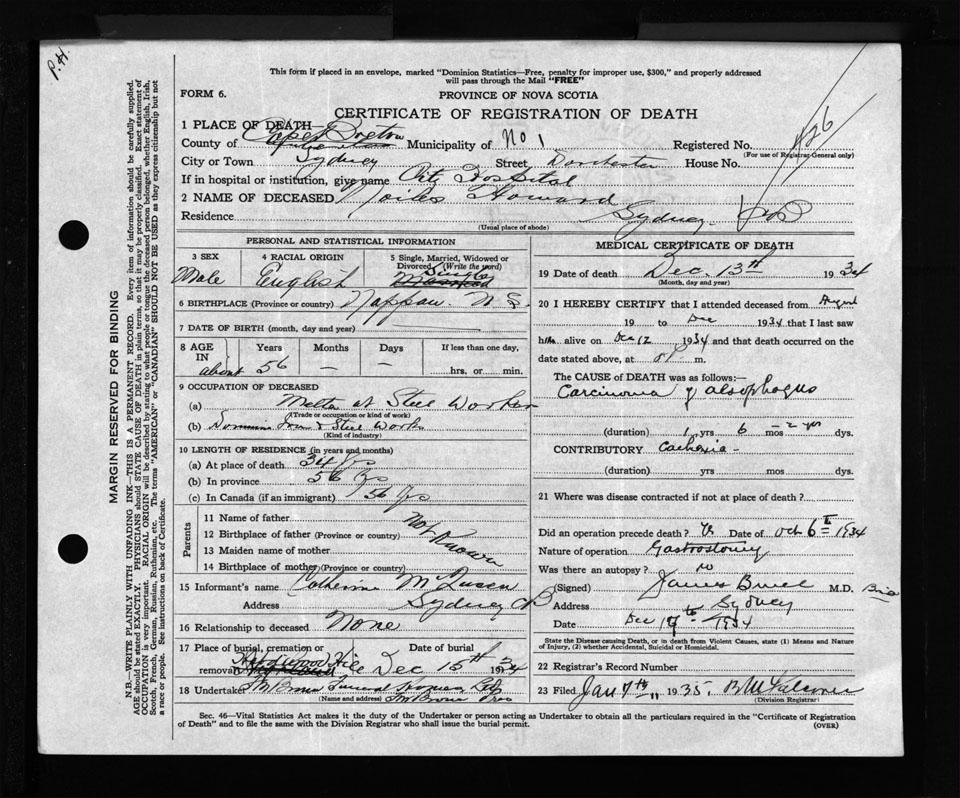 P.H.
This form if placed in an envelope, marked "Dominion Statistics—Free, penalty for improper use, $300," and properly addressed
will pass through the Mail "FREE"
FORM 6.
PROVINCE OF NOVA SCOTIA
CERTIFICATE OF REGISTRATION OF DEATH
1 PLACE OF DEATH—
County of Cape Breton Municipality of No 1 Registered No. 426
(For use of Registrar General only)
City or Town Sydney Street, Dorchester House No.
If in hospital or institution, give name City Hospital
2 NAME OF DECEASED Howard
Residence Sydney
(Usual place of abode)
MARGIN RESERVED FOR BINDING
N.B.—WRITE PLAINLY WITH UNFADING INK—THIS IS A PERMANENT RECORD. Every item of information should be carefully supplied.
AGE should be stated EXACTLY. PHYSICIANS should STATE CAUSE OF DEATH in plain terms, so that it may be properly classified. Exact statement of
OCCUPATION is very important. RACIAL ORIGIN will be described by stating to what people or tongue the deceased person belonged, whether English, Irish,
Scotch, French, German, Russian, Ruthenian, etc. The terms "AMERICAN" or "CANADIAN" SHOULD NOT BE USED as they express citizenship but not
a race or people. See instructions on back of Certificate.
PERSONAL AND STATISTICAL INFORMATION
3 SEX 4 RACIAL ORIGIN 5 Single, Married, Widowed or
Divorced (Write the word)
Male English Single
6 BIRTHPLACE (Province or country) Nappan. N.S.
7 DATE OF BIRTH (month, day and year)
8 AGE IN Years Months Days If less than one day,
about 56 — — hrs. or min.
9 OCCUPATION OF DECEASED
(a) Melter at Steel Works
(Trade or occupation or kind of work)
(b) Dominion Iron & Steel Works
(Kind of industry)
10 LENGTH OF RESIDENCE (in years and months)
(a) At place of death 34 Yrs
(b) In province 56 Yrs
(c) In Canada (if an immigrant) 56 Yrs
Parents
11 Name of father
12 Birthplace of father (Province or country)
13 Maiden name of mother
14 Birthplace of mother (Province or country)
Not Known
15 Informant's name Catherine McQueen
Address Sydney CB
16 Relationship to deceased None
17 Place of burial, cremation or Date of burial
removal Hardwood Hill Dec 15th 1934
18 Undertaker
(Name and address)
MEDICAL CERTIFICATE OF DEATH
19 Date of death Dec. 13th 1934
(Month, day and year)
20 I HEREBY CERTIFY that I attended deceased from August
19 to Dec 1934 that I last saw
him alive on Dec 12 1934 and that death occurred on the
date stated above, at m.
The CAUSE OF DEATH was as follows:—
Carcinoma of aesophagus
(duration) 1 yrs 6 mos dys.
CONTRIBUTORY Cachexia —
(duration) yrs mos dys.
21 Where was disease contracted if not at place of death?
Did an operation precede death? Date of Oct 6th 1934
Nature of operation Gastrostomy
Was there an autopsy? no
(Signed) James Bruce M.D.
Address Sydney
Date Dec 1934
State the Disease causing Death, or in death from Violent Causes, state (1) Means and Nature
of Injury, (2) whether Accidental, Suicidal or Homicidal.
22 Registrar's Record Number
23 Filed Jan 7th 1935.
(Division Registrar)
Sec. 46—Vital Statistics Act makes it the duty of the Undertaker or person acting as Undertaker to obtain all the particulars required in the "Certificate of Registration
of Death" and to file the same with the Division Registrar who shall issue the burial permit.
(OVER)